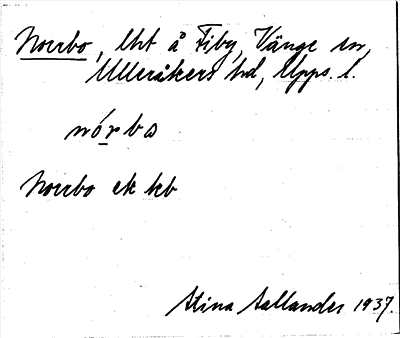 Norrbo, lht å Fiby, Vänge sn,
Ulleråkers hd, Upps. l.
nórbo
Norrbo ek kb
Stina Sallander 1937.